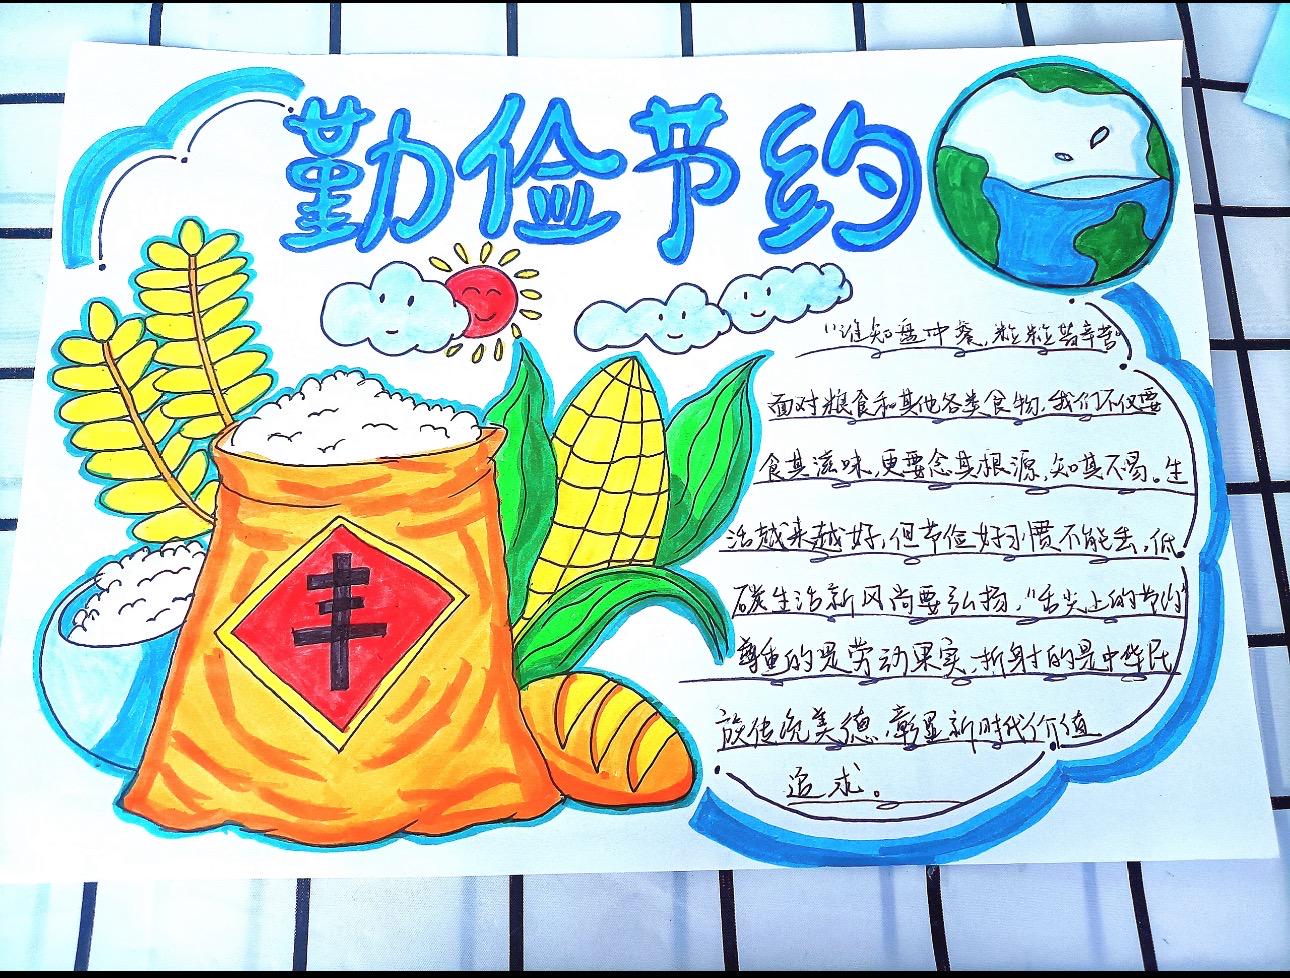 勤俭节约
丰
“谁知盘中餐,粒粒皆辛苦”
面对粮食和其他各类食物,我们不仅要
食其滋味,更要念其根源,知其不易。生
活越来越好,但节俭好习惯不能丢,低
碳生活新风尚要弘扬,“舌尖上的节约”
尊重的是劳动果实,折射的是中华民
族传统美德,彰显新时代价值
追求。